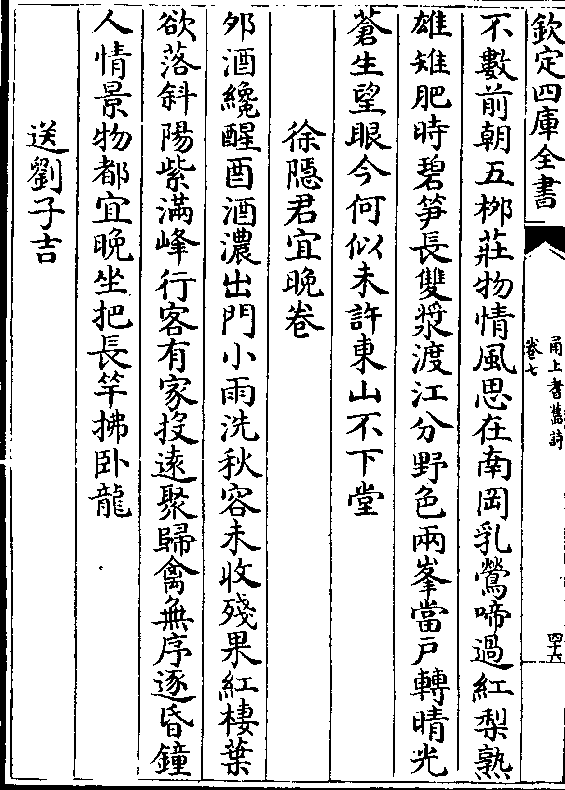 欽定四庫全書
甬上耆舊詩
卷七
四十六
不數前朝五栁莊物情風思在南岡乳鶯啼過紅梨熟
雄雉肥時碧笋長雙漿渡江分野色兩峯當戸轉晴光
蒼生望眼今何似未許東山不下堂
徐隠君宜晚卷
夘酒纔醒酉酒濃出門小雨洗秋容未收殘果紅棲葉
欲落斜陽紫滿峰行客有家投遠聚歸禽無序逐昏鐘
人情景物都宜晚坐把長竿拂卧龍
送劉子吉